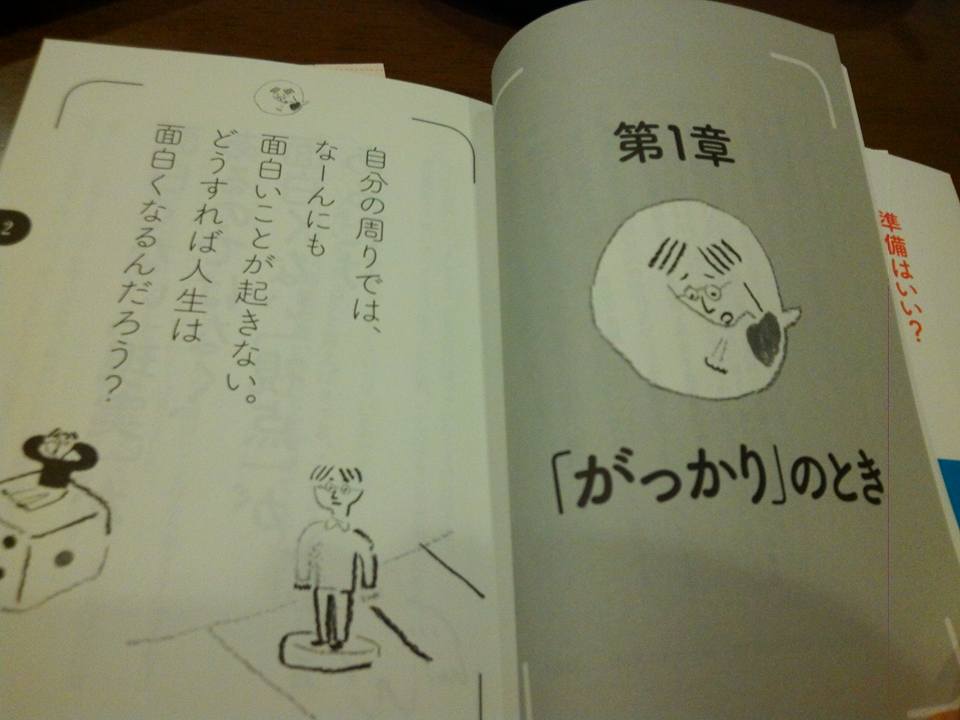 準備はいい？
第1章
「がっかり」のとき
自分の周りでは、
なーんにも
面白いことが起きない。
どうすれば人生は
面白くなるんだろう？
2